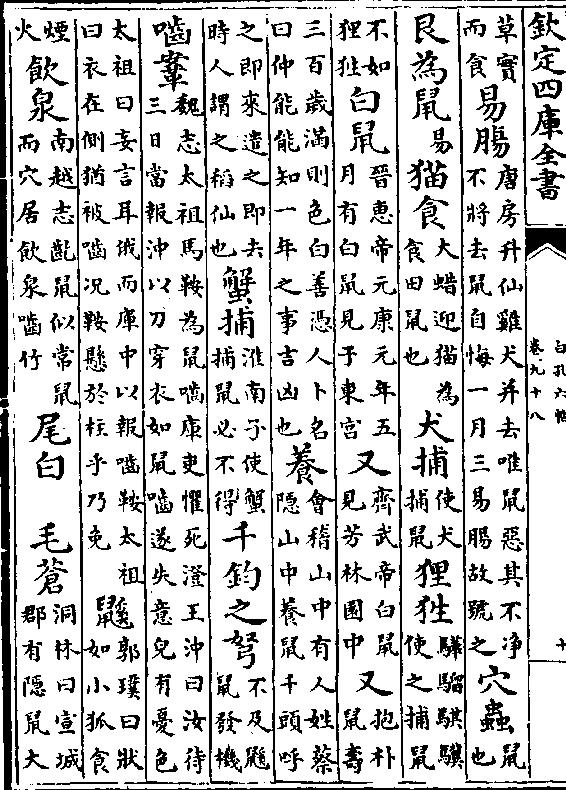 欽定四庫全書
白孔六帖
卷九十八
十
草實而食易腸唐房升仙雞犬并去唯鼠惡其不净不將去鼠自悔一月三易腸故號之穴蟲鼠也
艮為鼠易猫食大蜡迎猫為食田鼠也犬捕使犬捕鼠狸狌驊騮騏驥使之捕鼠
不如狸狌白鼠晉惠帝元康元年五月有白鼠見于東宮又齊武帝白鼠見芳林園中又抱朴鼠壽
三百歲滿則色白善憑人卜名曰仲能能知一年之事吉凶也養會稽山中有人姓蔡隱山中養鼠千頭呼
之即來遣之即去時人謂之稻仙也蟹捕淮南子使蟹捕鼠必不得千鈞之弩不及鼷鼠發機
嚙鞌魏志太祖馬鞍為鼠嚙庫吏懼死澄王沖曰汝待三日當報沖以刀穿衣如鼠嚙遂失意皃有憂色
太祖曰妄言耳俄而庫中以報嚙鞍太祖曰衣在側猶被嚙况鞍懸於柱乎乃免郭璞曰狀如小狐食
煙火飲泉南越志鼫鼠似常鼠而穴居飲泉嚙竹尾白毛蒼洞林曰宣城郡有隱鼠大